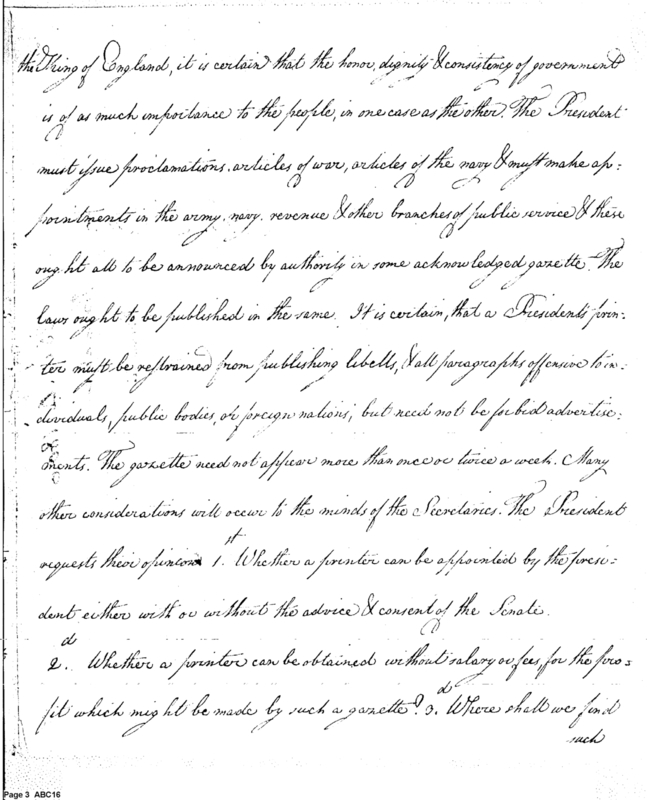 the King of England, it is certain that the honor, dignity & consistency of government
is of as much importance to the people, in one case as the other. The President
must issue proclamations, articles of war, articles of the navy & must make ap-
pointments in the army, navy, revenue & other branches of public service & these
ought all to be announced by authority in some acknowledged gazette. The
laws ought to be published in the same. It is certain, that a President's prin-
ter must be restrained from publishing libells, & all paragraphs offensive to in-
dividuals, public bodies, or foreign nations, but need not be forbid advertise-
ments. The gazette need not appear more than once or twice a week. Many
other considerations will occur to the minds of the Secretaries. The President
requests their opinions 1.st Whether a printer can be appointed by the presi-
dent either with or without the advice & consent of the Senate.
2.d Whether a printer can be obtained without salary or fees, for the pro-
fit which might be made by such a gazette? 3.d Where shall we find
such
Page 3 ABC16